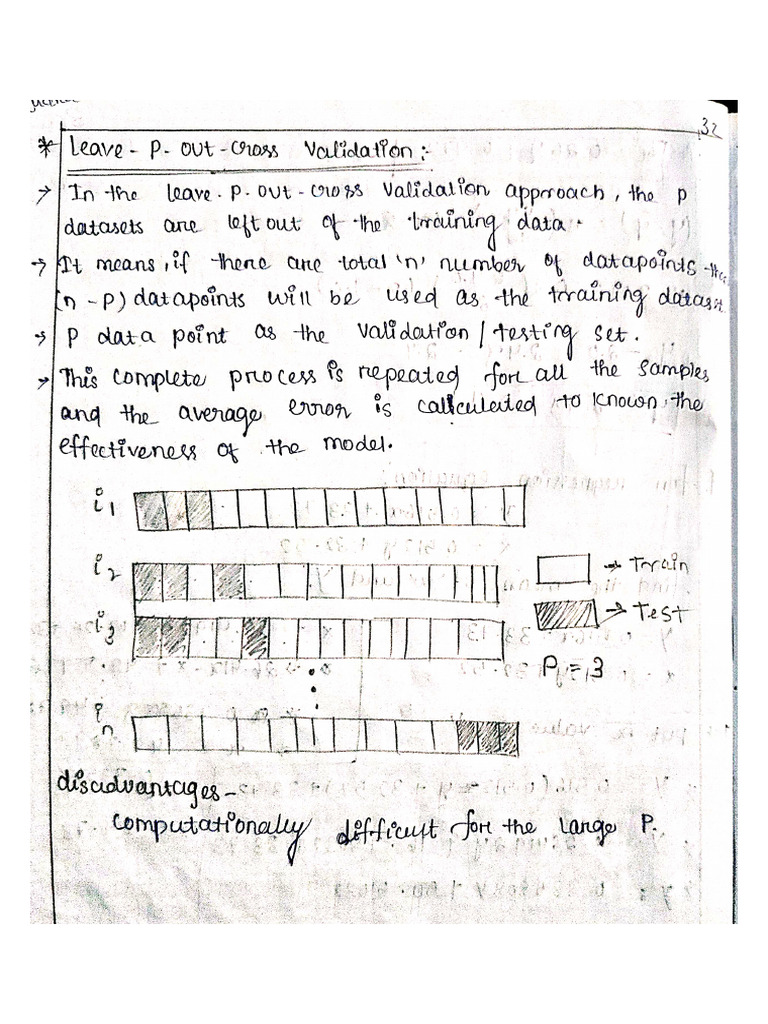 32
* Leave - P - out - cross validation :-
→ In the leave - p - out - cross validation approach, the p
datasets are left out of the training data.
→ It means, if there are total 'n' number of datapoints the
(n - p) datapoints will be used as the training dataset
→ P data point as the validation / testing set.
→ This complete process is repeated for all the samples
and the average error is calculated to known the
effectiveness of the model.
i1
i2
→ Train
i3
→ Test
P = 3
in
disadvantages -
computationally difficult for the large P.